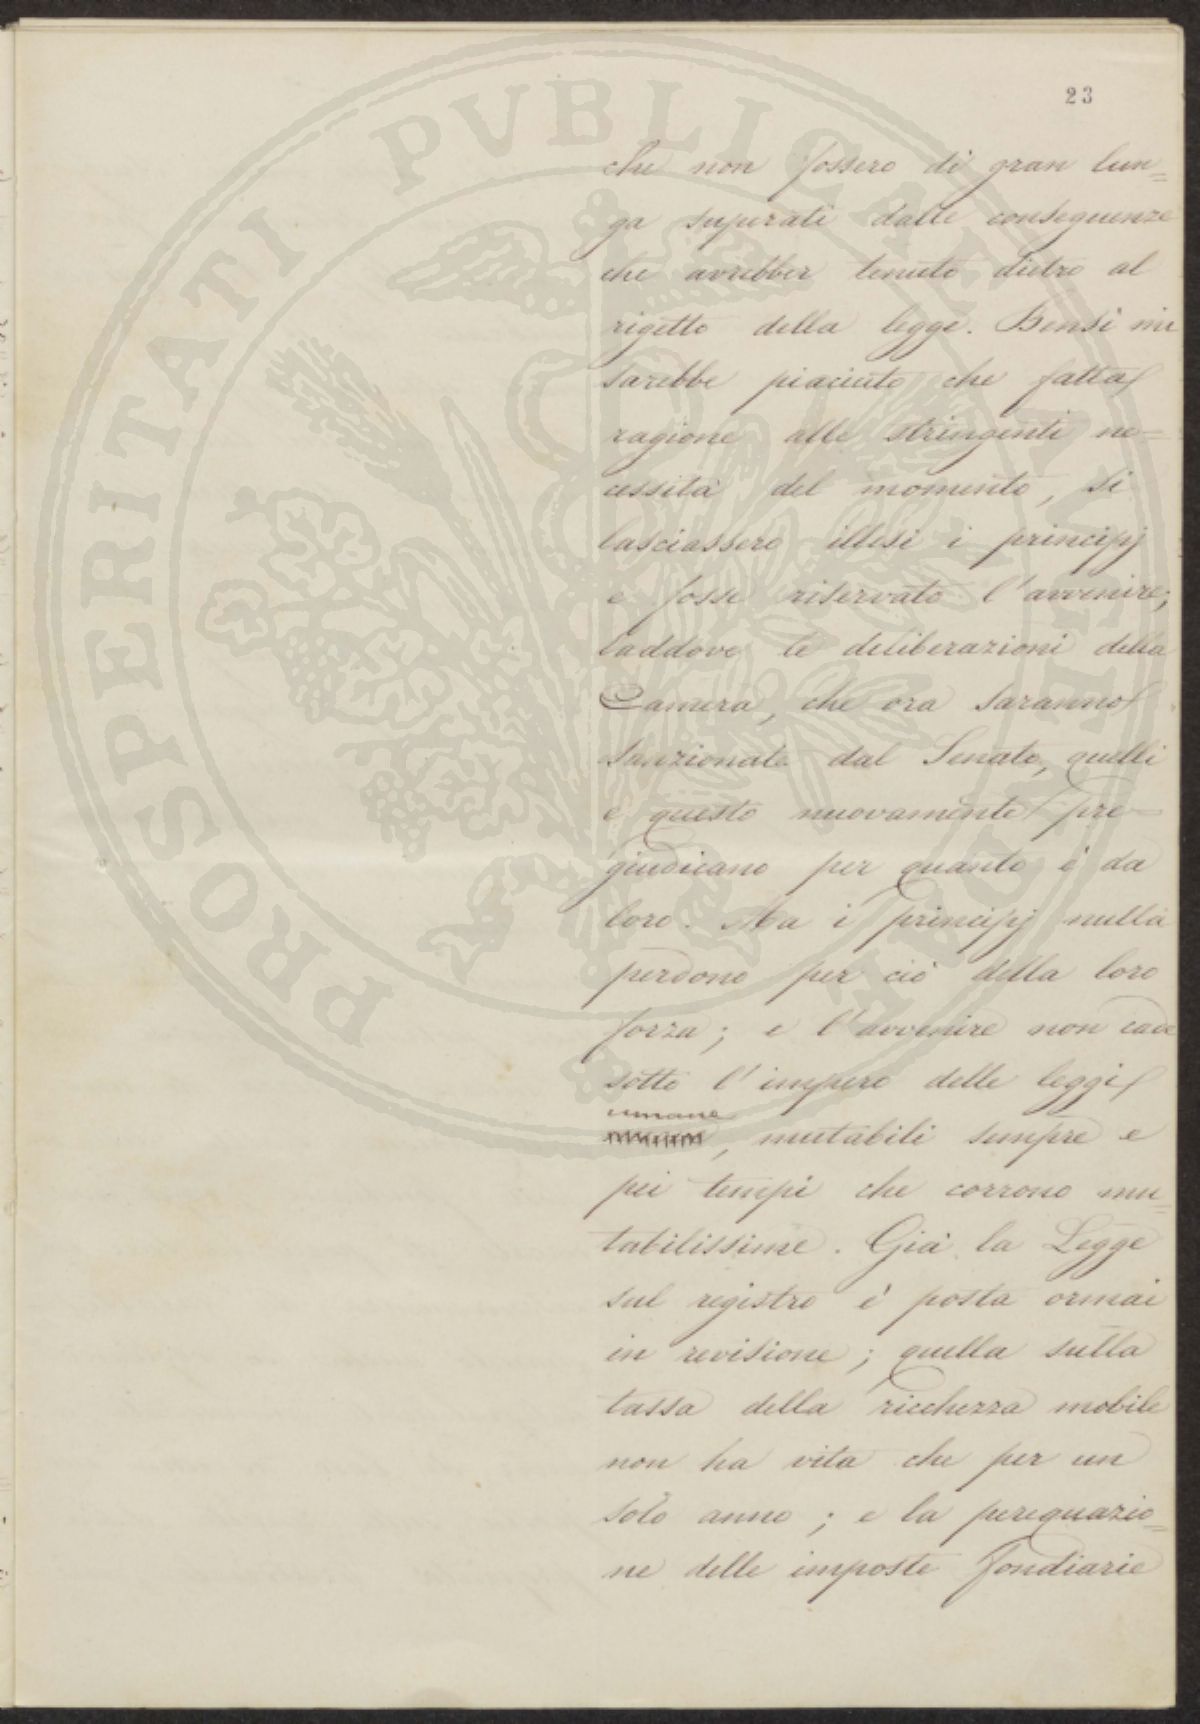 23
che non fossero di gran lun=
ga superati dalle conseguenze
che avrebber tenuto dietro al
rigetto della legge. Bensì mi
sarebbe piaciuto che fatta
ragione alle stringenti ne=
cessità del momento, si
lasciassero illesi i principj
e fosse riservato l'avvenire;
laddove le deliberazioni della
Camera, che ora saranno
sanzionate dal Senato, quelli
e questo nuovamente pre=
giudicano per quanto è da
loro. Ma i principj nulla
perdono per ciò della loro
forza; e l'avvenire non cade
sotto l'impero delle leggi
umane
, mutabili sempre e
pei tempi che corrono mu=
tabilissime. Già la Legge
sul registro è posta ormai
in revisione; quella sulla
tassa della ricchezza mobile
non ha vita che per un
solo anno; e la perequazio=
ne delle imposte fondiarie
PROSPERITATI PVBLICAE